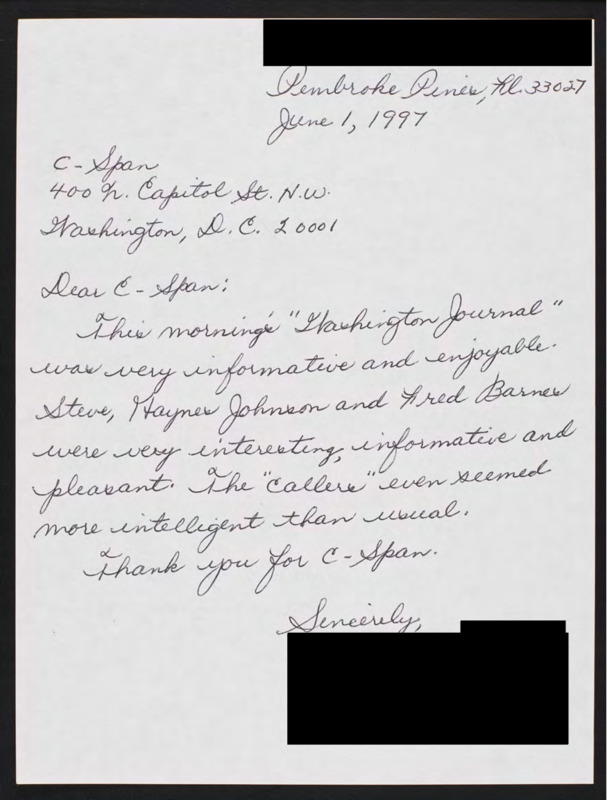 Pembroke Pines, Fl. 33027
June 1, 1997
C-Span
400 N. Capitol St. N.W.
Washington, D.C. 20001
Dear C-Span:
This morning's "Washington Journal"
was very informative and enjoyable.
Steve, Haynes Johnson and Fred Barnes
were very interesting, informative and
pleasant. The "callers" even seemed
more intelligent than usual.
Thank you for C-Span.
Sincerely,